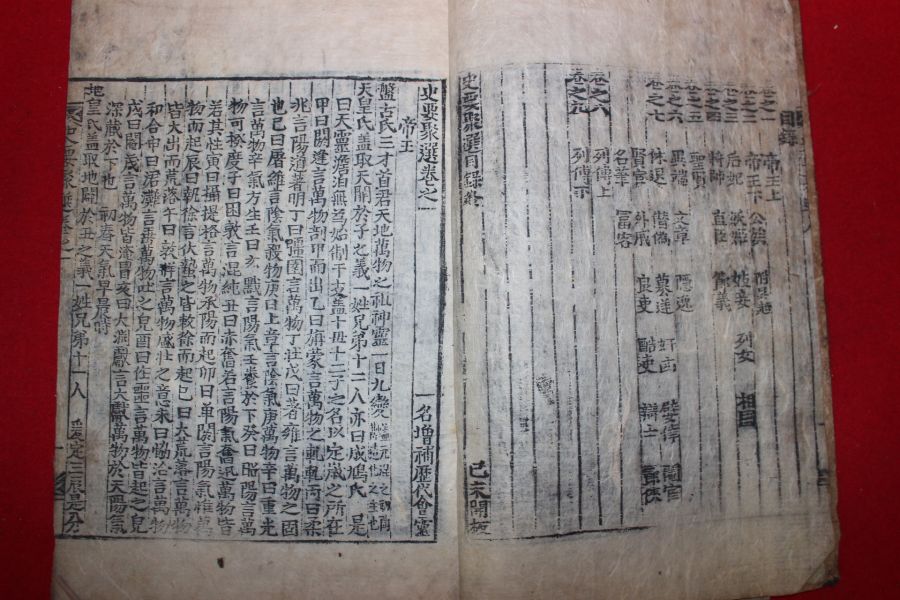 目錄
卷之一 帝王上
卷之二 帝王下 公族
卷之三 后妃 姬妾 列女
卷之四 將帥 直臣 節義 相國
卷之五 聖賢
卷之六 異端 文章 隱逸
卷之七 休退 僭偽 姦凶 嬖倖 閹宦
賢宦 外戚 良吏 酷吏 辯士
名筆 富客
卷之八 列傳上
卷之九 列傳下
史要聚選目錄終
己未開板
史要聚選卷之一 一名增補歷代會靈
帝王
盤古氏三才首君天地萬物之祖神靈一日九變
天皇氏盖取天開於子之義一姓兄弟十二人亦曰成鳩氏 是
曰天靈澹泊無爲始制干支盖十母十二子之名以定歲之所在
甲曰閼逢言萬物剖甲而出乙曰旃蒙言萬物之軋軋丙曰柔
兆言陽道著明丁曰强圉言萬物丁壯戊曰著雍言萬物之固
也己曰屠維言陰氣穀物庚曰上章言陰氣庚萬物辛曰重光
言萬物辛氣方生壬曰玄黓言陽氣壬養於下癸曰昭陽言萬
物可揆度子曰困敦言混沌丑曰赤奮若言陽氣奮迅萬物皆
若其性寅曰攝提格言萬物承陽而起卯曰單閼言陽氣推萬
物而起辰曰執徐言伏蟄之皆敕徐而起巳曰大荒落言萬物
皆大出而荒落午曰敦牂言萬物盛壯之意未曰協洽言萬物
和合申曰涒灘言萬物吐之皃酉曰作噩言萬物皆起之皃
戌曰閹茂言萬物皆淹冒亥曰大淵獻言大獻萬物於天陽氣
深藏於下也
地皇氏盖取地闢於丑之義一姓兄弟十一人 爰定三辰是分